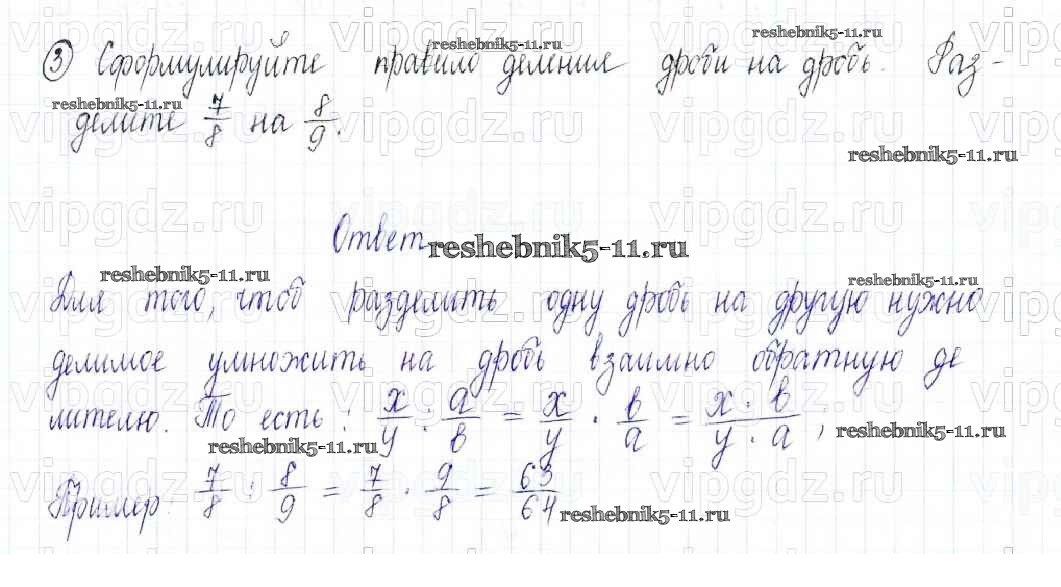 ③ Сформулируйте правило деления дроби на дробь. Раз-
делите 7/8 на 8/9.
Ответ
Для того, чтоб разделить одну дробь на другую нужно
делимое умножить на дробь взаимно обратную де
лителю. То есть: x/y : a/b = x/y · b/a = x · b / y · a,
Пример: 7/8 : 8/9 = 7/8 · 9/8 = 63/64
reshebnik5-11.ru
vipgdz.ru